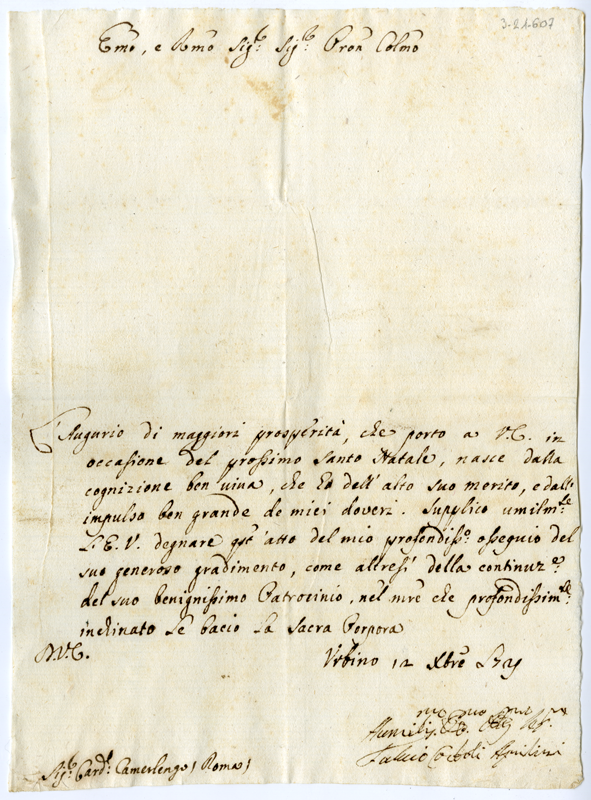 3-21-607
Emo, e Rmo Sigre: Sigre: Pron Colmo
L'Augurio di maggiori prosperità, che porto a V.E. in
occasione del prossimo Santo Natale, nasce dalla
cognizione ben viva, che hò dell'alto suo merito, e dall'
impulso ben grande de miei doveri. Supplico umilmte:
L'E.V. degnare qst'atto del mio profondisso: ossequio del
suo generoso gradimento, come altresì della continuze:
del suo benignissimo Patrocinio, nel mre che profondissimte:
inchinato Le bacio La Sacra Porpora
D.V.E.
Urbino 12 Xbre
Humilis
Sigr Cardl Camerlengo / Roma /